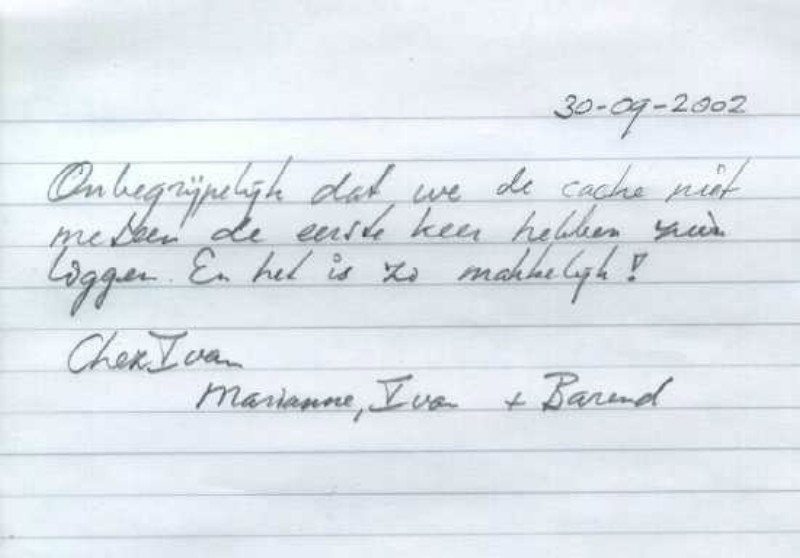 30-09-2002
Onbegrijpelijk dat we de cache niet
meteen de eerste keer hebben zien
liggen. En het is zo makkelijk!
Chez Ivan
Marianne, Ivan + Barend